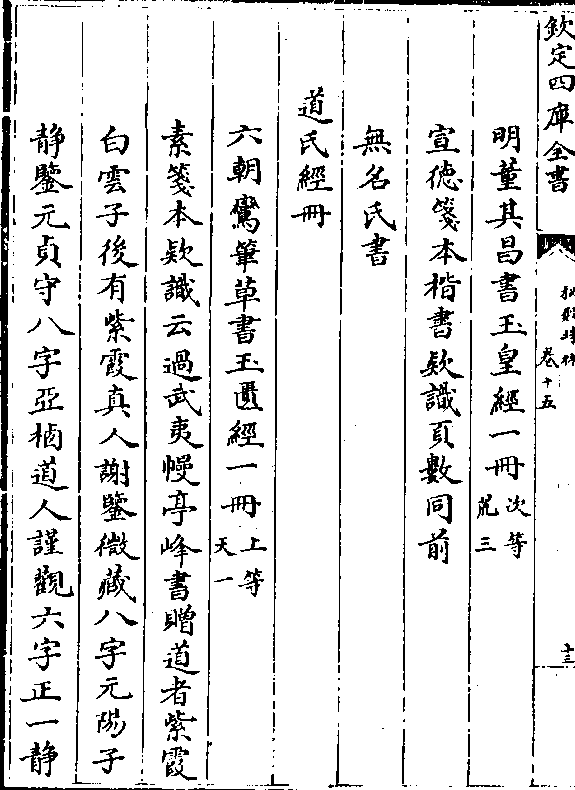 欽定四庫全書
秘殿珠林
卷十五
十三
明董其昌書玉皇經一冊 次等 三
宣德箋本楷書欵識頁數同前
無名氏書
道氏經冊
六朝鸞筆草書玉匱經一冊 上等 天一
素箋本欵識云過武夷幔亭峰書贈道者紫霞
白雲子後有紫霞真人謝鑒微藏八字元陽子
静鑒元貞守八字亞栖道人謹觀六字正一静